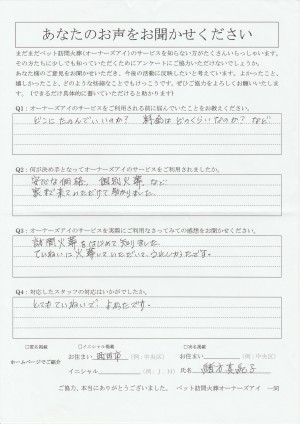 あなたのお声をお聞かせください
まだまだペット訪問火葬(オーナーズアイ)のサービスを知らない方がたくさんいらっしゃいます。
その方たちに少しでも知っていただくためにアンケートにご協力いただけないでしょうか。
あなた様のご意見をお聞かせいただき、今後の活動に反映したいと考えています。よかったこと、
嬉しかったこと、どのような些細なことでもけっこうです。ぜひご協力をよろしくお願いいたしま
す。(できるだけ具体的に書いていただけると助かります)
Q1:オーナーズアイのサービスをご利用される前に悩んでいたことをお教えください。
どこにたのんでいいのか? 料金はどのくらいなのか? など
Q2:何が決め手となってオーナーズアイのサービスをご利用されましたか。
安心な価格、個別火葬など
家まで来ていただけて助かりました。
Q3:オーナーズアイのサービスを実際にご利用されなさってみての感想をお聞かせください。
訪問火葬をはじめて知りました。
ていねいに火葬していただいて、うれしかったです。
Q4:対応したスタッフの対応はいかがでしたか。
とてもていねいで よかったです。
□匿名掲載 □イニシャル掲載 □実名掲載
ホームページでご紹介
お住まい (例:中央区) お住まい (例:中央区)
イニシャル (例:J.H) 氏名 緒方真紀子
ご協力、本当にありがとうございました。 ペット訪問火葬オーナーズアイ —50